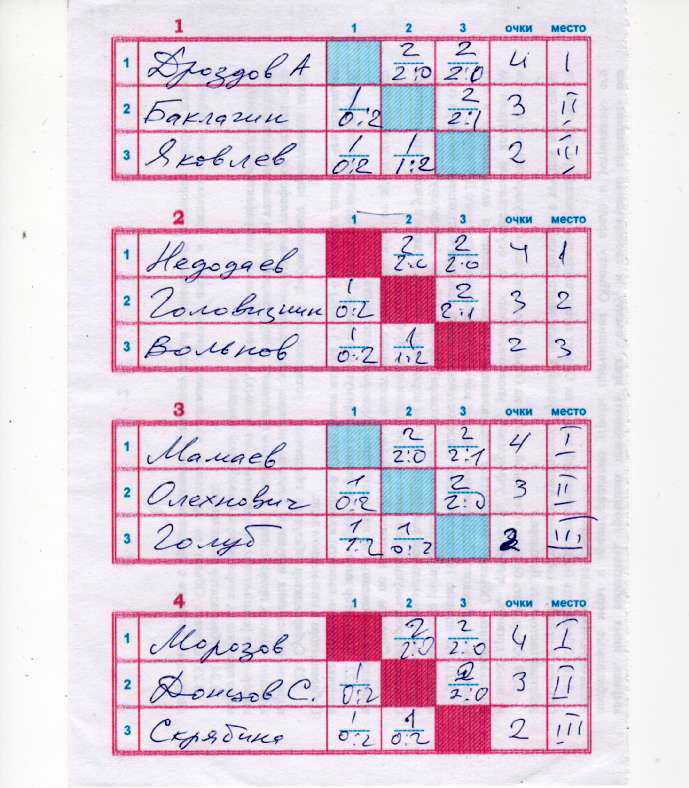 1 1 2 3 очки место
1 Дроздов А 2 2:0 2 2:0 4 I
2 Баклагин 1 0:2 2 2:1 3 II
3 Яковлев 1 0:2 1 1:2 2 III
2 1 2 3 очки место
1 Недодаев 2 2:0 2 2:0 4 1
2 Головизнин 1 0:2 2 2:1 3 2
3 Вольнов 1 0:2 1 1:2 2 3
3 1 2 3 очки место
1 Мамаев 2 2:0 2 2:1 4 I
2 Олехнович 1 0:2 2 2:0 3 II
3 Голуб 1 1:2 1 0:2 2 III
4 1 2 3 очки место
1 Морозов 2 2:0 2 2:0 4 I
2 Донцов С. 1 0:2 2 2:0 3 II
3 Скрябина 1 0:2 1 0:2 2 III